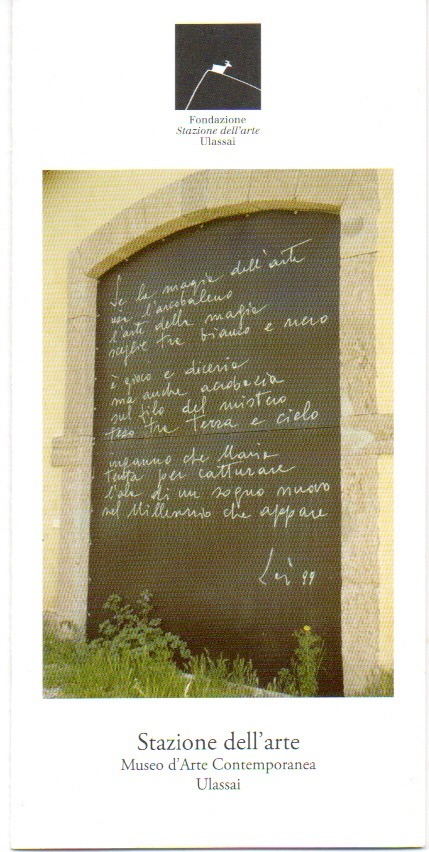 Fondazione
Stazione dell'arte
Ulassai
Se la magia dell'arte
usa l'arcobaleno
l'arte della magia
sceglie tra bianco e nero
è gioco e diceria
ma anche acrobazia
sul filo del mistero
teso tra terra e cielo
inganno che Maria
tenta per catturare
l'ala di un sogno nuovo
nel Millennio che appare
99
Stazione dell'arte
Museo d'Arte Contemporanea
Ulassai